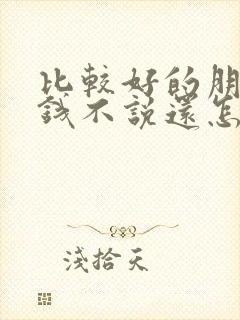 比較好的朋
錢不說還怎
淺拾天